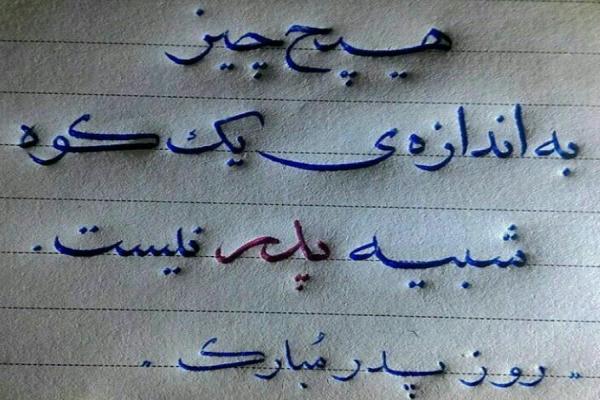 هیچ چیز
به اندازه‌ی یک کوه
شبیه پدر نیست.
"روز پدر مُبارک"